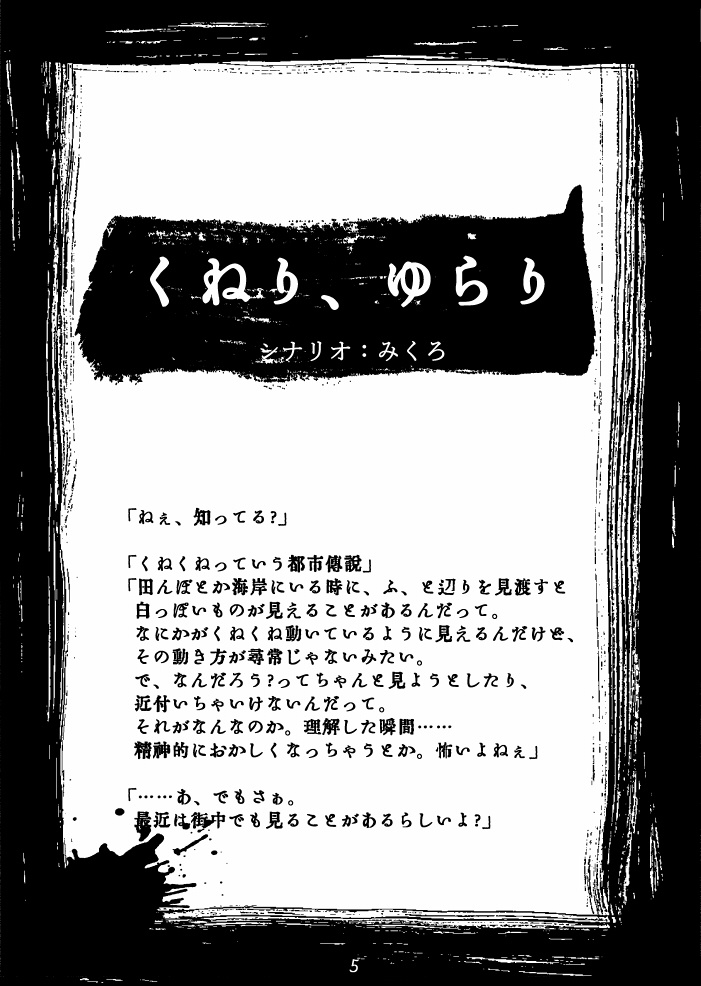 くねり、ゆらり
シナリオ：みくろ
「ねぇ、知ってる?」
「くねくねっていう都市傳説」
「田んぼとか海岸にいる時に、ふ、と辺りを見渡すと
白っぽいものが見えることがあるんだって。
なにかがくねくね動いているように見えるんだけど、
その動き方が尋常じゃないみたい。
で、なんだろう?ってちゃんと見ようとしたり、
近付いちゃいけないんだって。
それがなんなのか。理解した瞬間……
精神的におかしくなっちゃうとか。怖いよねぇ」
「……あ、でもさぁ。
最近は街中でも見ることがあるらしいよ?」
5